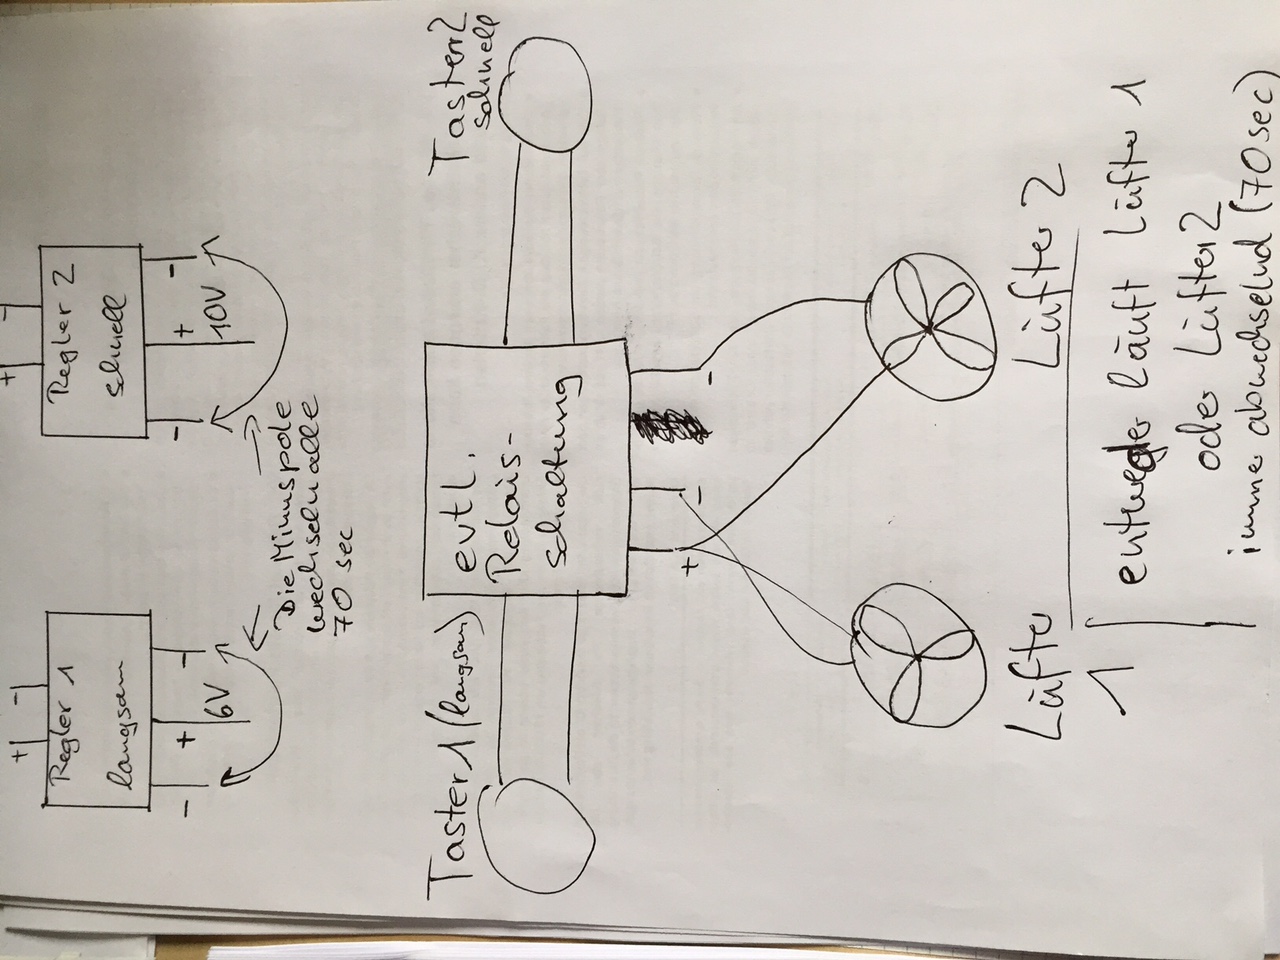 + -
Regler 1
langsam
- + -
6V
+ -
Regler 2
schnell
- + -
10V
Die Minuspole
wechseln alle
70 sec
Taster 1 (langsam)
evtl.
Relais-
schaltung
Taster 2
schnell
+ - -
Lüfter
1
Lüfter 2
entweder läuft Lüfter 1
oder Lüfter 2
immer abwechselnd (70 sec)